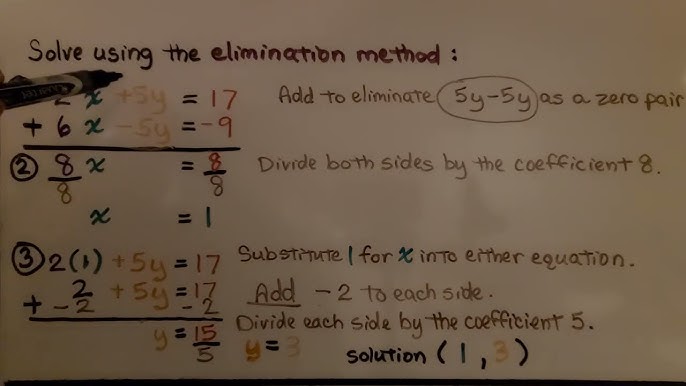 Solve using the elimination method :
2x + 5y = 17 Add to eliminate 5y - 5y as a zero pair
+ 6x - 5y = -9
② 8/8 x = 8/8 Divide both sides by the coefficient 8.
x = 1
③ 2(1) + 5y = 17 Substitute 1 for x into either equation.
2 + 5y = 17 Add -2 to each side.
+ -2 -2
y = 15/5 Divide each side by the coefficient 5.
y = 3 solution (1, 3)